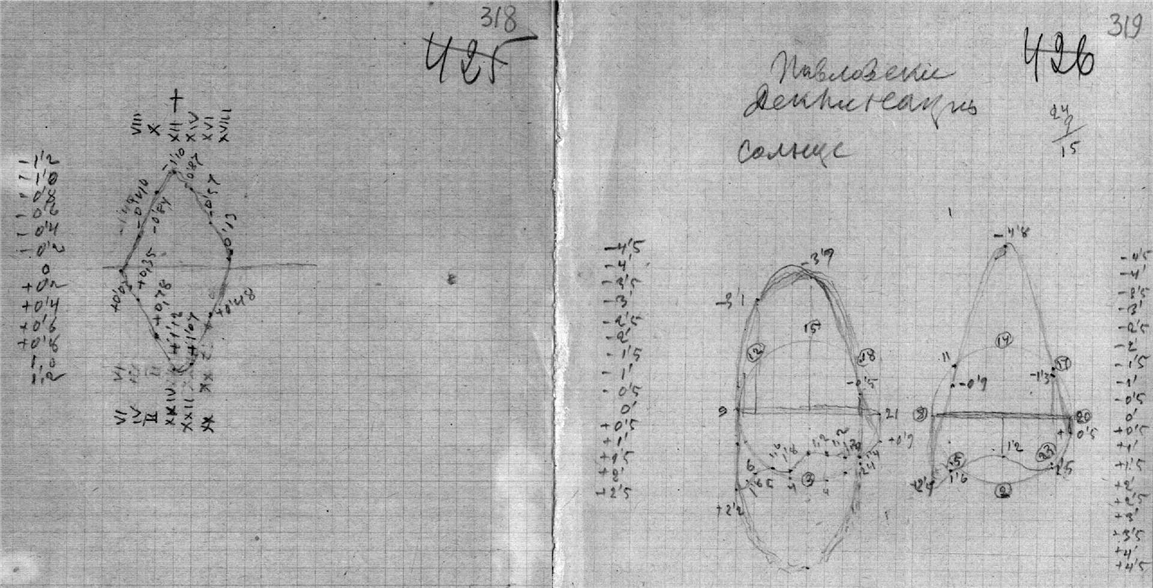 318
425
VIII
X
XII
XIV
XVI
XVIII
-1'2
-1'0
-0'8
-0'6
-0'4
-0'2
0
+0'2
+0'4
+0'6
-1'0
-0'87
-0'57
-0'13
-0'84
+0,35
+0,78
+1'12
+1'07
+0'48
VI
IV
II
XXIV
XXII
XX
319
426
Павловски
Деклинация
Солнце
24
9
15
-4'5
-4'
-3'5
-3'
-2'5
-2'
-1'5
-1'
-0'5
0'
+0'5
+2'5
-3'9
-3'1
15
12
18
-0'5
9
21
+0'9
6
1'6
1'8
1'2
1'2
3
1'65
+2'2
-4'8
14
11
17
-0'9
-1'3
20
+0'5
1'2
23
5
1'6
2
-4'5
-4'
-3'5
-3'
-2'5
-2'
-1'5
-1'
-0'5
0'
+0'5
+1'
+1'5
+2'
+2'5
+3'
+3'5
+4'
+4'5